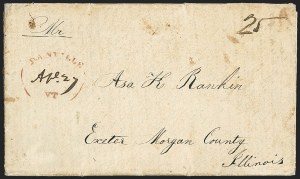 Mr
25
DANVILLE
Apl 27
VT
Asa K Rankin
Exeter Morgan County
Illinois